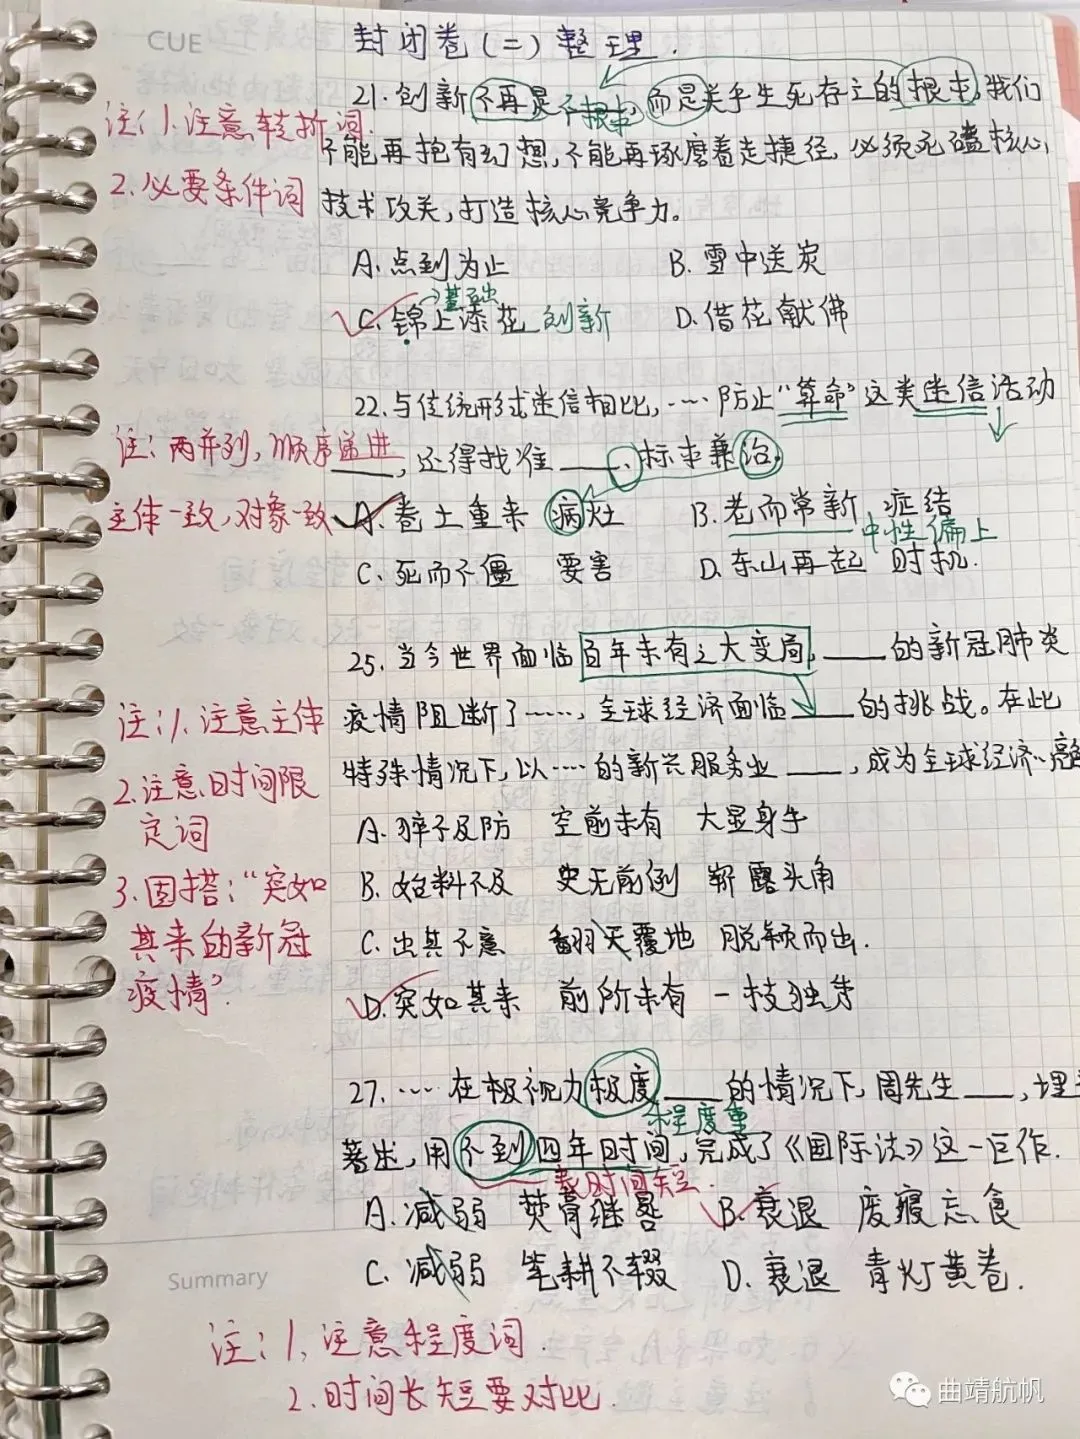 CUE
封闭卷(二)整理.
21.创新不再是不根本,而是关乎生死存亡的根本,我们
注:1.注意转折词.
不能再抱有幻想,不能再琢磨着走捷径,必须死磕核心
2.必要条件词
技术攻关,打造核心竞争力。
A.点到为止 B.雪中送炭
→基础
C.锦上添花 创新 D.借花献佛
22.与传统形式迷信相比,……防止“算命”这类迷信活动
注:两并列,顺序递进
____,还得找准____、标本兼治。
主体一致,对象一致
A.卷土重来 病灶 B.老而常新 症结
中性偏上
C.死而不僵 要害 D.东山再起 时机.
25.当今世界面临百年未有之大变局,____的新冠肺炎
注:1.注意主体
疫情阻断了……,全球经济面临____的挑战。在此
特殊情况下,以……的新兴服务业____,成为全球经济亮
2.注意时间限
定词
A.猝不及防 空前未有 大显身手
3.固搭:“突如
B.始料不及 史无前例 崭露头角
其来的新冠
C.出其不意 翻天覆地 脱颖而出.
疫情”.
D.突如其来 前所未有 一枝独秀
27.……在极视力极度____的情况下,周先生____,埋
程度重
著述,用不到四年时间,完成了《国际法》这一巨作.
表时间短.
A.减弱 焚膏继晷 B.衰退 废寝忘食
C.减弱 笔耕不辍 D.衰退 青灯黄卷.
Summary
注:1.注意程度词.
2.时间长短要对比.
曲靖航帆